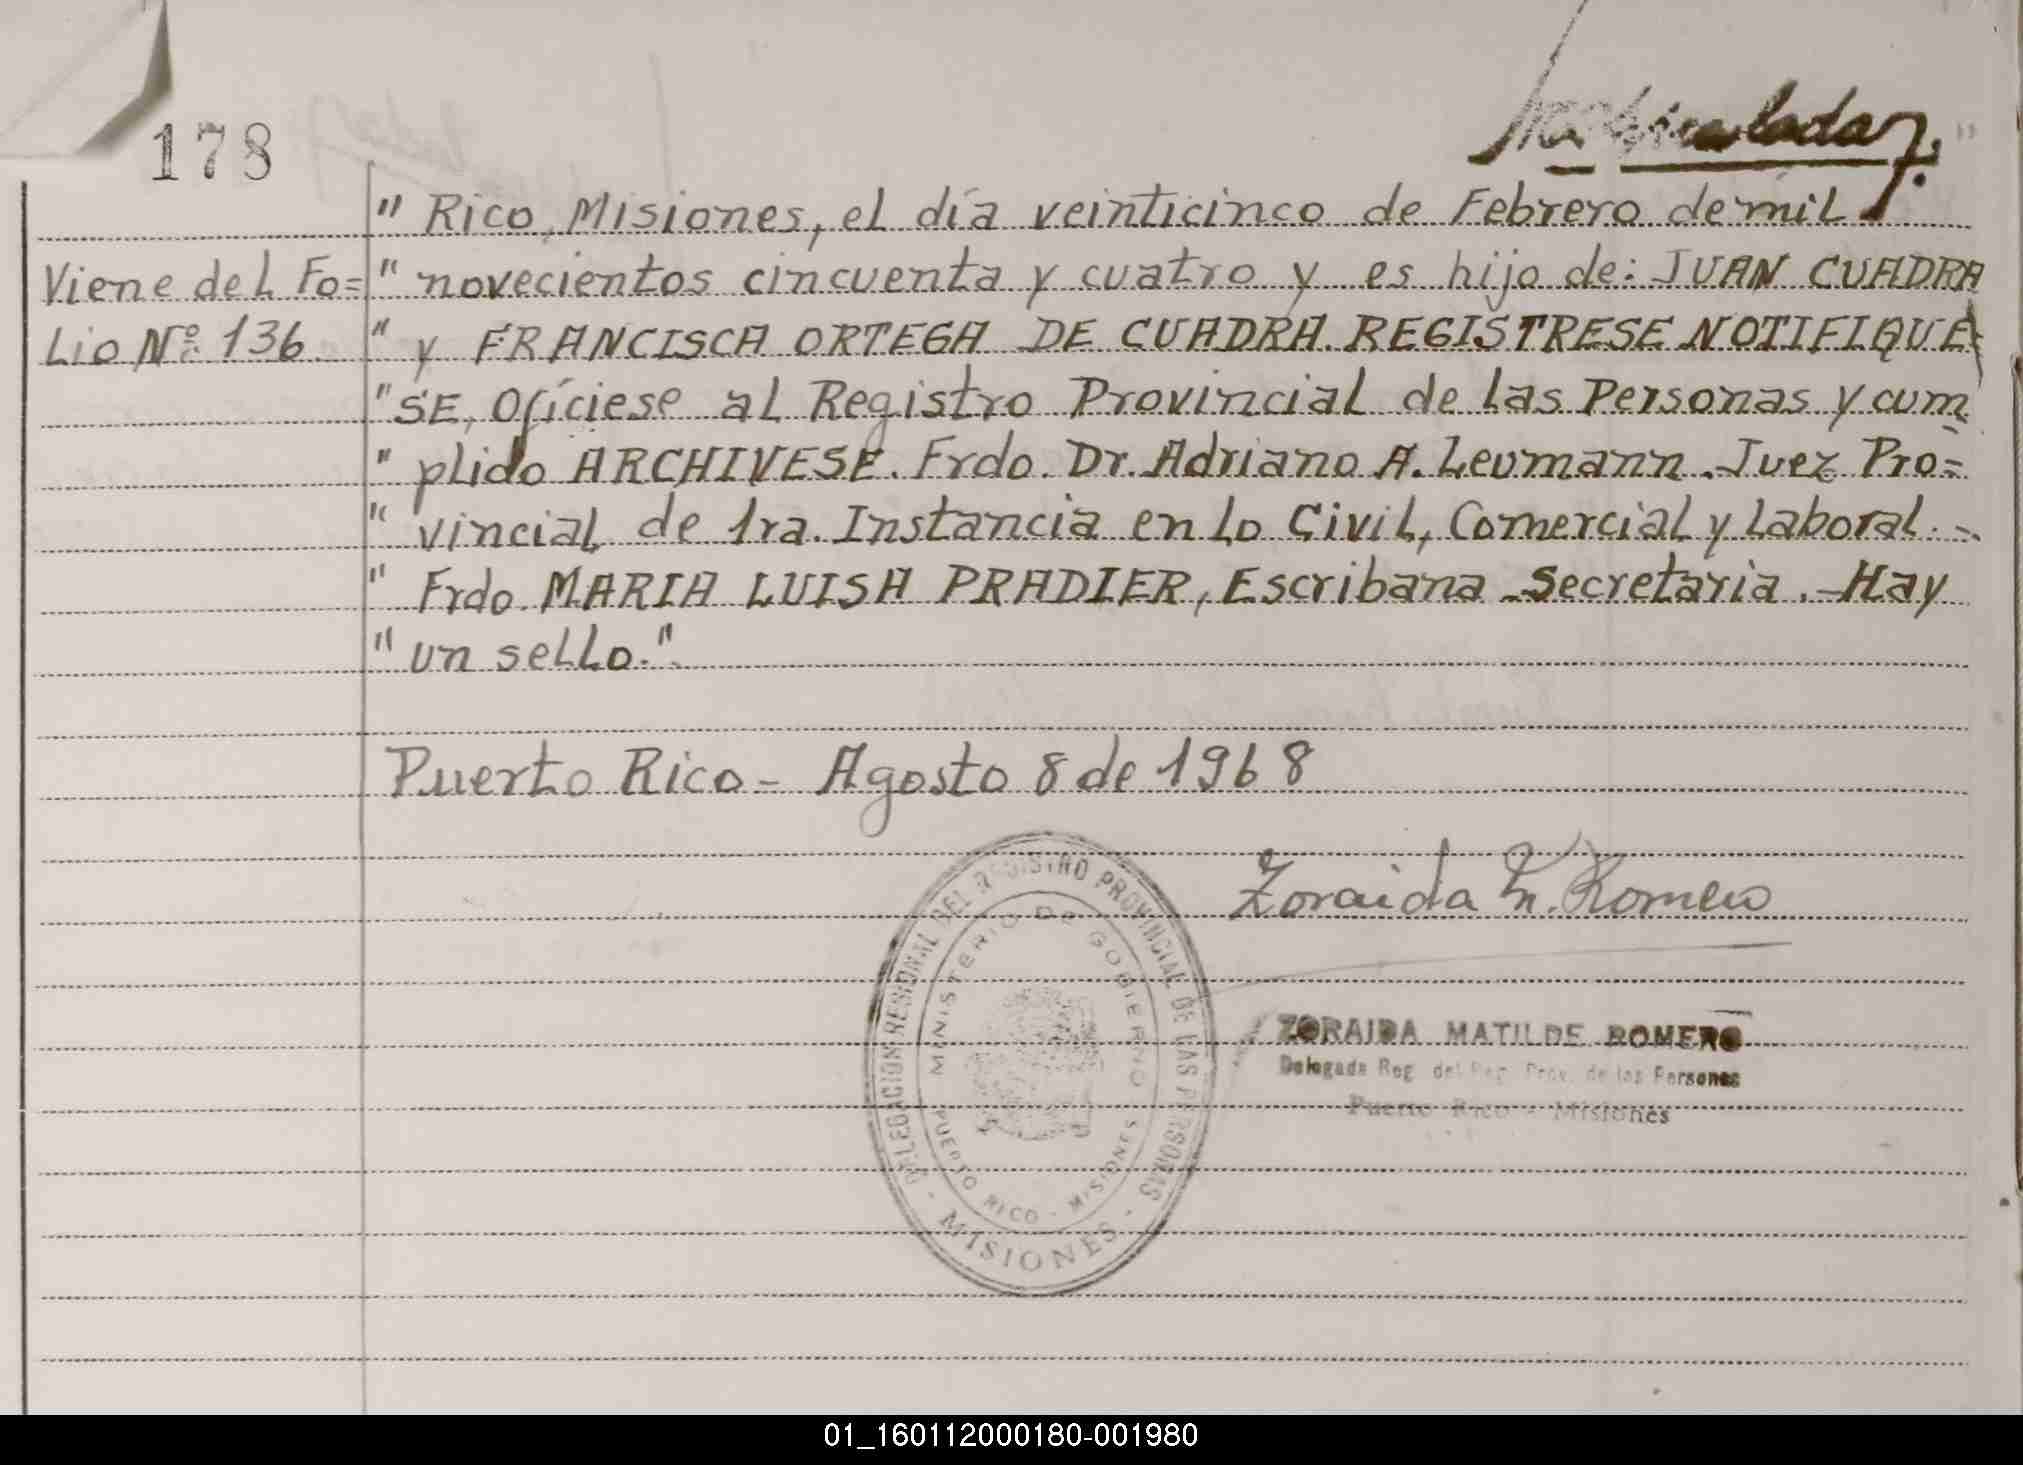 178
" Rico, Misiones, el día veinticinco de Febrero de mil
Viene del Fo=
" novecientos cincuenta y cuatro y es hijo de: JUAN CUADRA
Lio Nº 136
" y FRANCISCA ORTEGA DE CUADRA. REGISTRESE NOTIFIQUE
" SE, Ofíciese al Registro Provincial de las Personas y cum
" plido ARCHIVESE. Frdo. Dr. Adriano A. Leumann. Juez Pro=
" vincial de 1ra. Instancia en lo Civil, Comercial y Laboral.-
" Frdo. MARIA LUISA PRADIER, Escribana Secretaria.-Hay
" un sello."
Puerto Rico - Agosto 8 de 1968
Zoraida M. Romero
DELEGACION REGIONAL DEL REGISTRO PROVINCIAL DE LAS PERSONAS
- MISIONES -
MINISTERIO DE GOBIERNO
PUERTO RICO - MISIONES
ZORAIDA MATILDE ROMERO
Delegada Reg. del Reg. Prov. de las Personas
Puerto Rico - Misiones
01_160112000180-001980